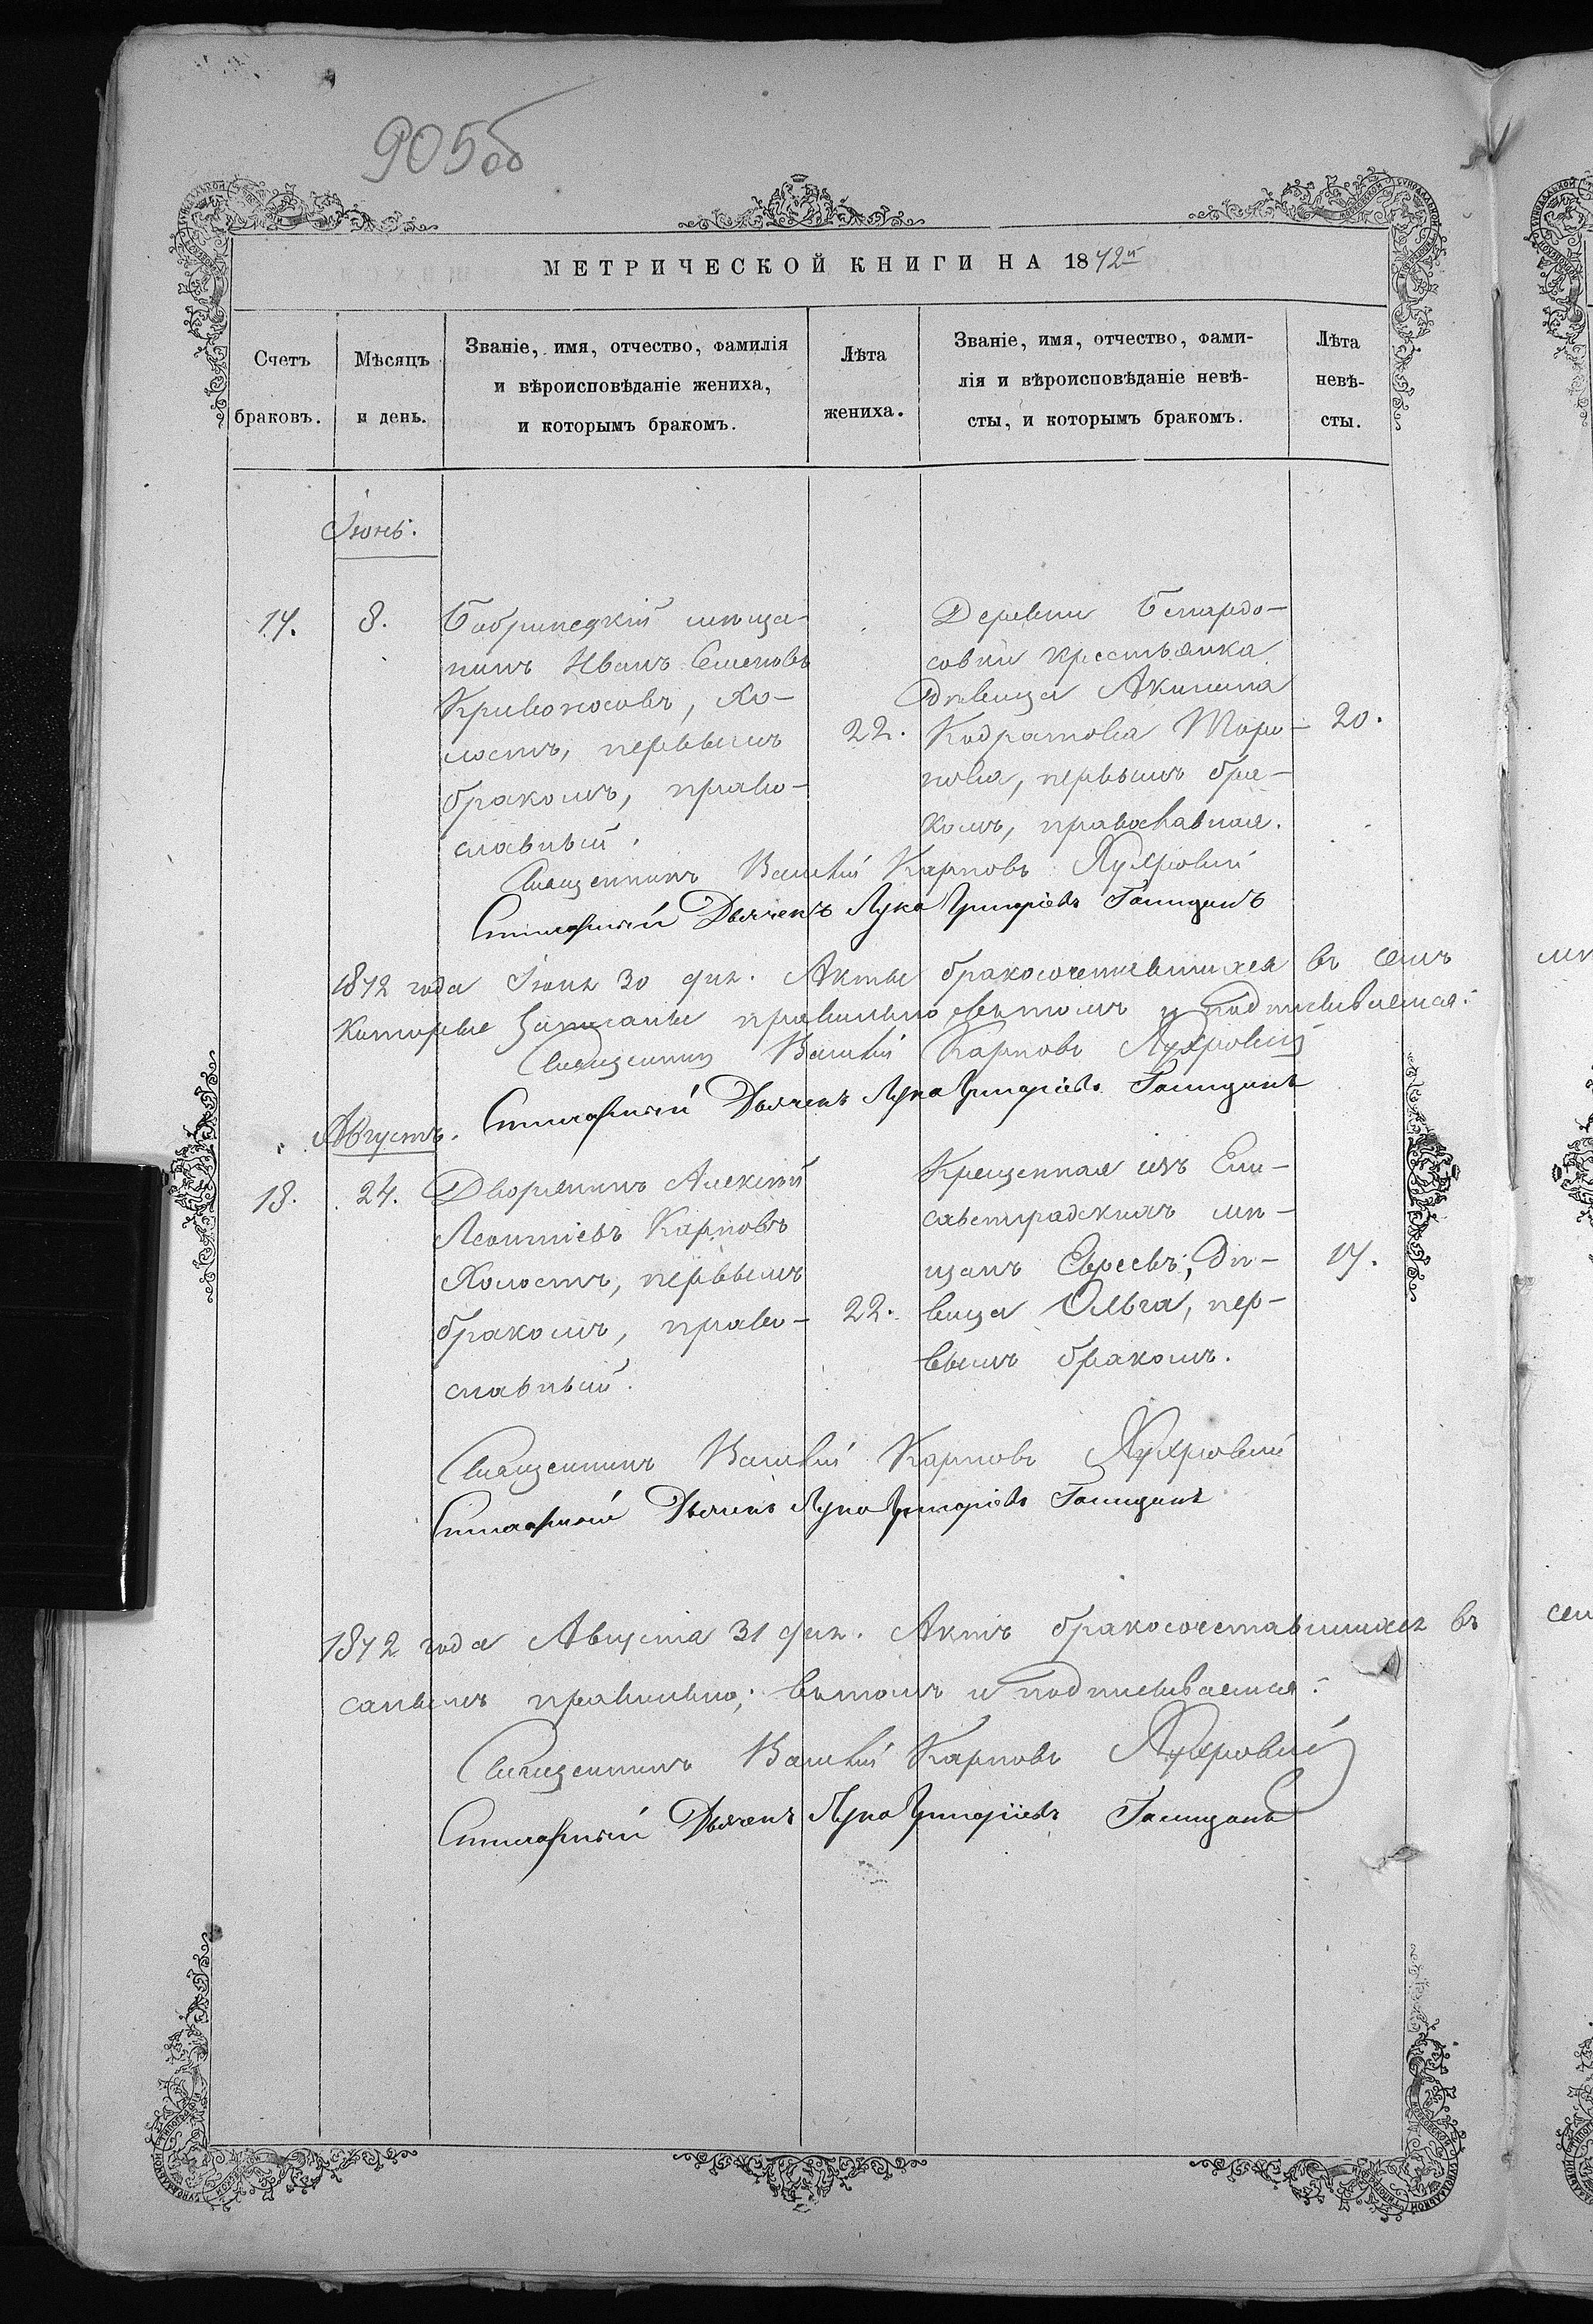 905об
МЕТРИЧЕСКОЙ КНИГИ НА 1872й
Счетъ браковъ.
Мѣсяцъ и день.
Званіе, имя, отчество, фамилія
и вѣроисповѣданіе жениха,
и которымъ бракомъ.
Лѣта жениха.
Званіе, имя, отчество, фами-
лія и вѣроисповѣданіе невѣ-
сты, и которымъ бракомъ.
Лѣта невѣ-
сты.
Іюнь.
17.
8.
Бобринецкій мѣща-
нинъ Иванъ Семеновъ
Кривоносовъ, хо-
лостъ, первымъ
бракомъ, право-
славный.
22.
Деревни
совки крестьянка
Дѣвица Акилина
Кодратова
нова, первымъ бра-
комъ, православная.
20.
Священникъ Василій Карповъ
Дьячекъ Лука Григоріевъ
1872 года Іюня 30 дня. Акты бракосочетавшихся въ семъ
которые записаны правильно въ томъ и подписываемся:
Священникъ Василій Карповъ
Дьячекъ Лука Григоріевъ
Августъ.
18.
24.
Дворянинъ Алексѣй
Леонтіевъ Карповъ
Холостъ, первымъ
бракомъ, право-
славный.
22.
Крещенная изъ Ели-
саветградскихъ мѣ-
щанъ Евреевъ, Дѣ-
вица Ольга, пер-
вымъ бракомъ.
17.
Священникъ Василій Карповъ
Дьячекъ Лука Григоріевъ
1872 года Августа 31 дня. Актъ бракосочетавшихся въ
санъ правильно; въ томъ и подписываемся:
Священникъ Василій Карповъ
Дьячекъ Лука Григоріевъ